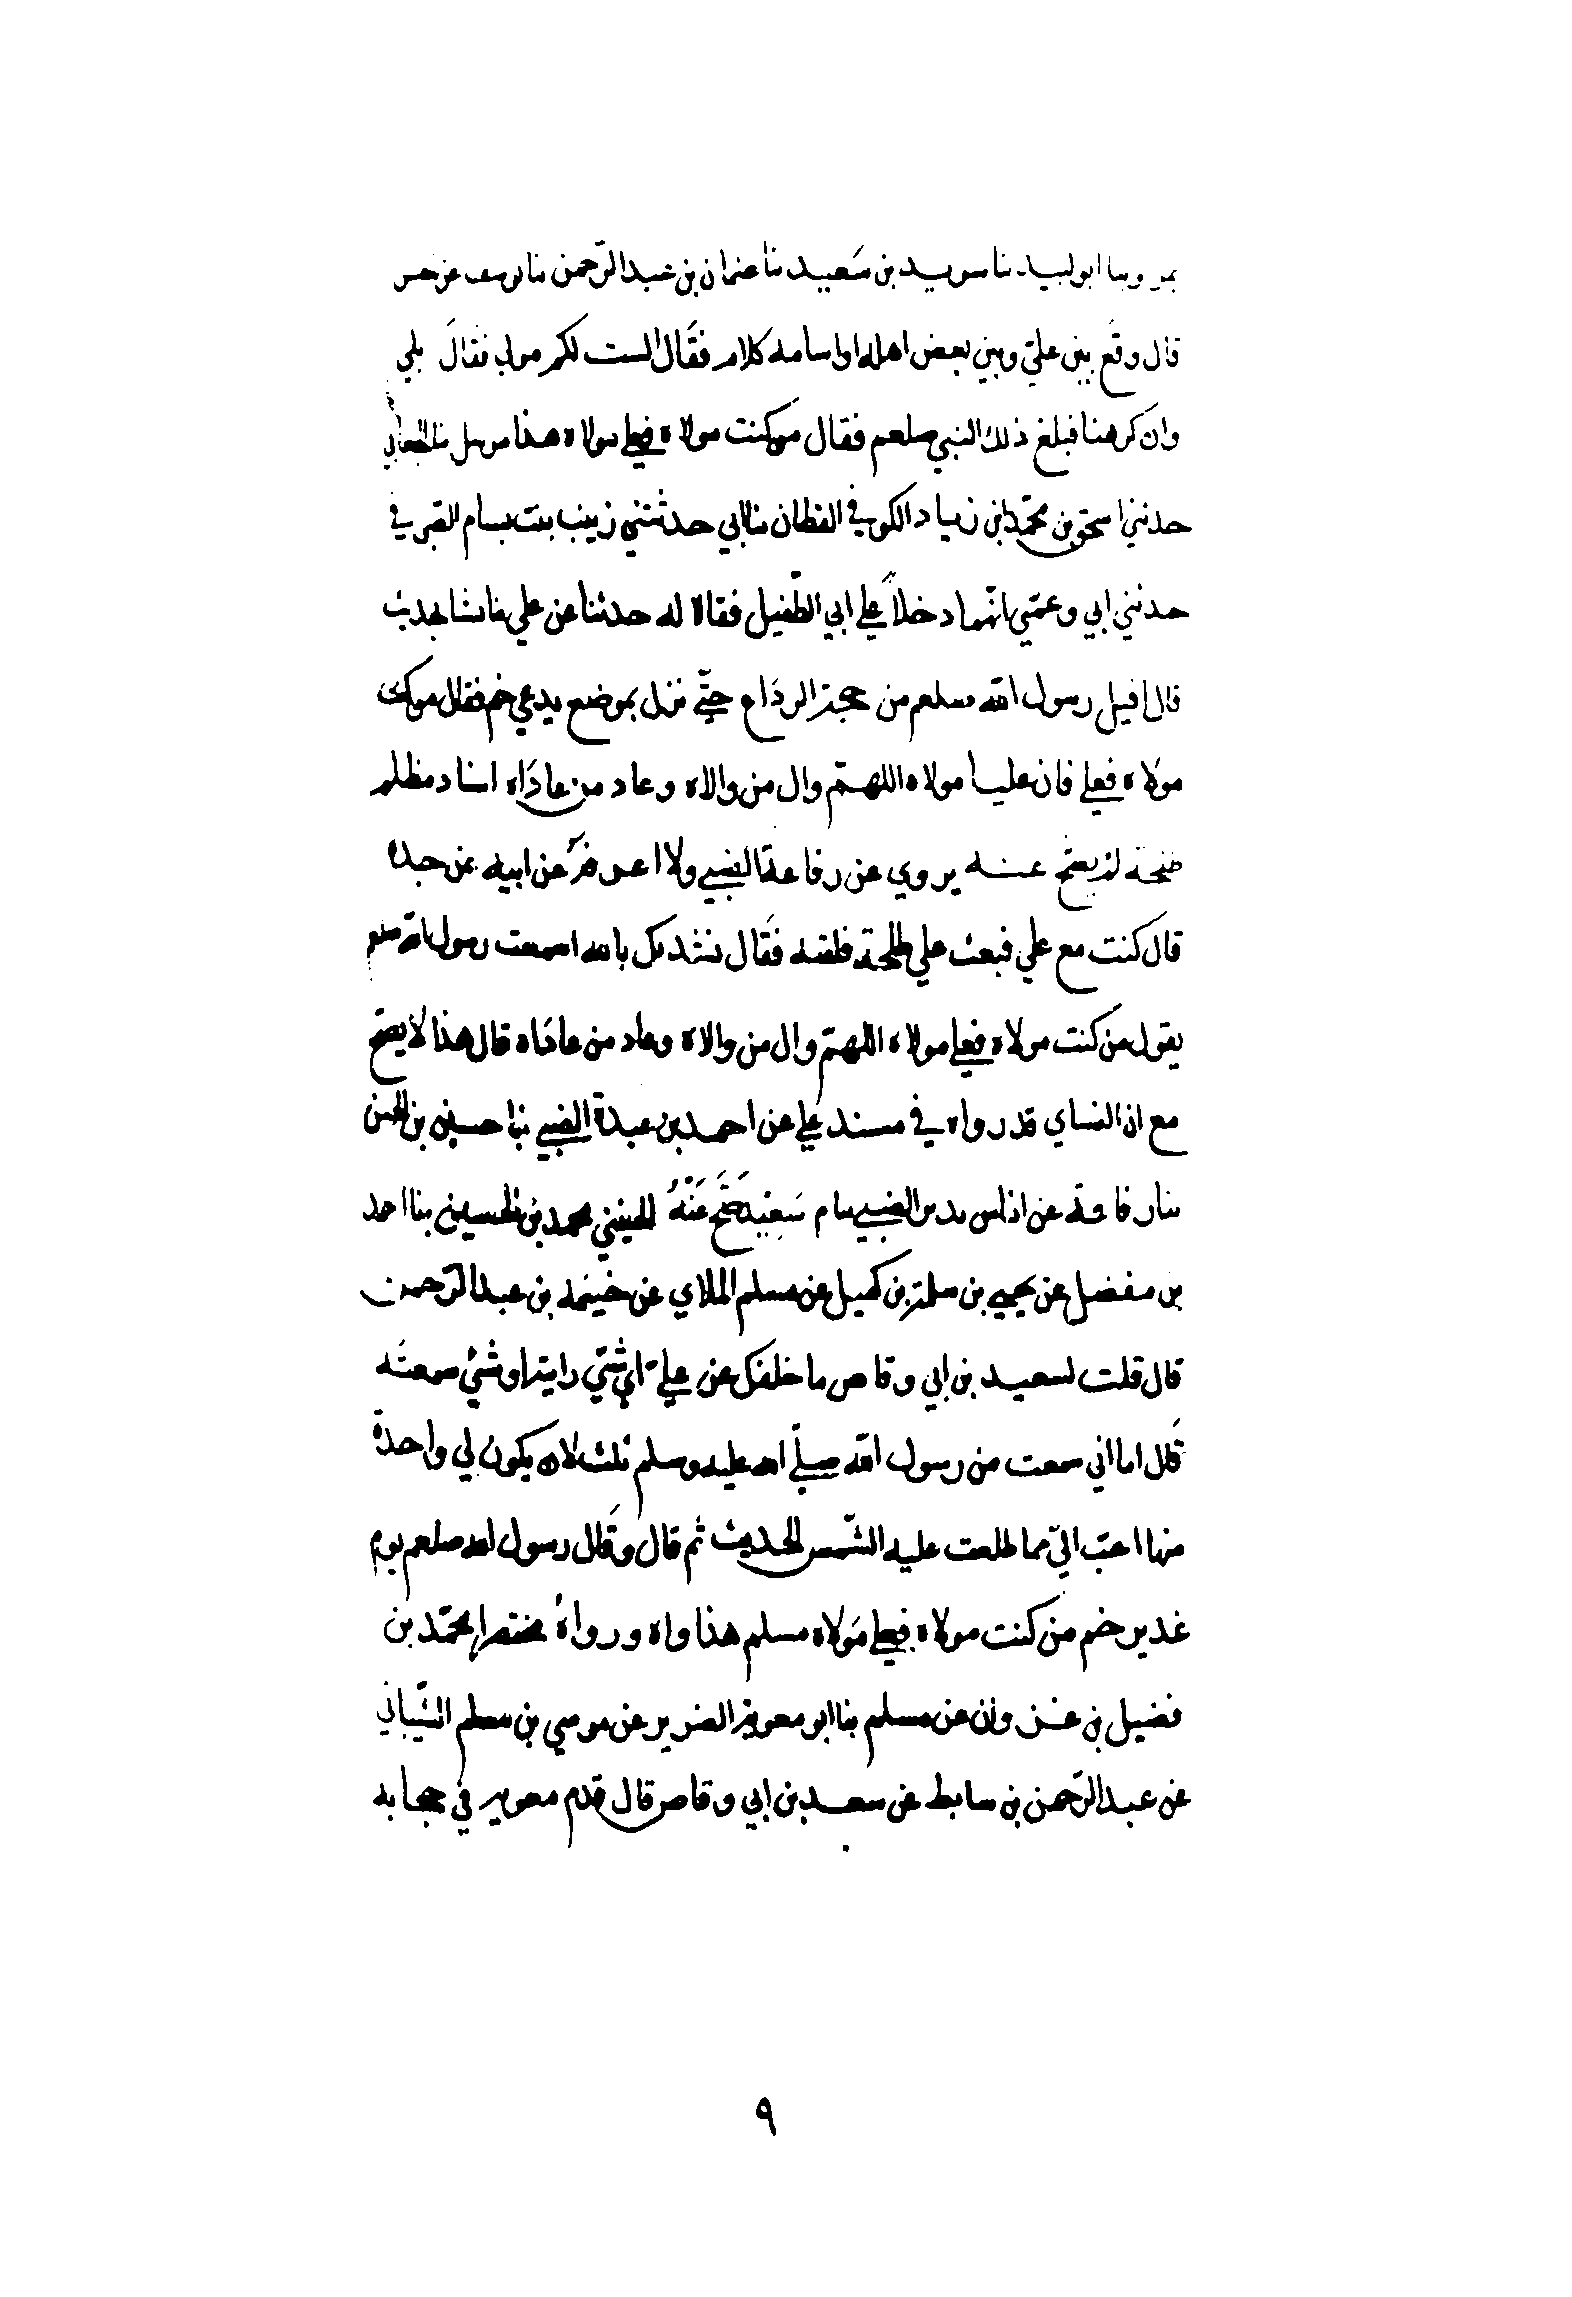 ابو لبيد ثنا سويد بن سعيد ثنا عثمان بن عبد الرحمن ثنا يوسف عن حسن
قال وقع بين علي وبين بعض اهله او اسامه كلام فقال الست لكم مولي فقال بلي
وان كرهنا فبلغ ذلك النبي صلعم فقال من كنت مولاه فعلي مولاه هذا مرسل
حدثني اسحق بن محمد بن زياد الكوفي القطان ثنا ابي حدثتني زينب بنت بسام
حدثني ابي وعمتي انهما دخلا علي ابي الطفيل فقالا له حدثنا عن علي
قال اقبل رسول الله صلعم من حجة الوداع حتي نزل بموضع يدعي خم فقال من كنت
مولاه فعلي فان عليا مولاه اللهم وال من والاه وعاد من عاداه اسناد مظلم
طلحة لم يصح عنه يروي عن رفاعة الضبي ولا اعرفه عن ابيه عن جده
قال كنت مع علي فبعث علي طلحة فلقيه فقال ننشدك بالله اسمعت رسول الله صلعم
يقول من كنت مولاه فعلي مولاه اللهم وال من والاه وعاد من عاداه قال هذا لا يصح
مع ان النساي قد رواه في مسند علي عن احمد بن عبدة الضبي ثنا حسين بن الحسن
ثنا رفاعة عن اياس بن الضبي صح عنه محمد بن الحسين ثنا احمد
بن مفضل عن يحيي بن سلمة بن كهيل عن مسلم الملاي عن خيثمه بن عبد الرحمن
قال قلت لسعيد بن ابي وقاص ما خلفك عن علي اي شئ رايته او شئ سمعته
قال اما اني سمعت من رسول الله صلي الله عليه وسلم ثلث لان يكون لي واحدة
منها احب الي مما طلعت عليه الشمس الحديث ثم قال وقال رسول الله صلعم يوم
غدير خم من كنت مولاه فعلي مولاه مسلم هذا واه ورواه مختصرا محمد بن
فضيل بن غزوان عن مسلم ثنا ابو معوية الضرير عن موسي بن مسلم الشيباني
عن عبد الرحمن بن سابط عن سعد بن ابي وقاص قال قدم معوية في
٩